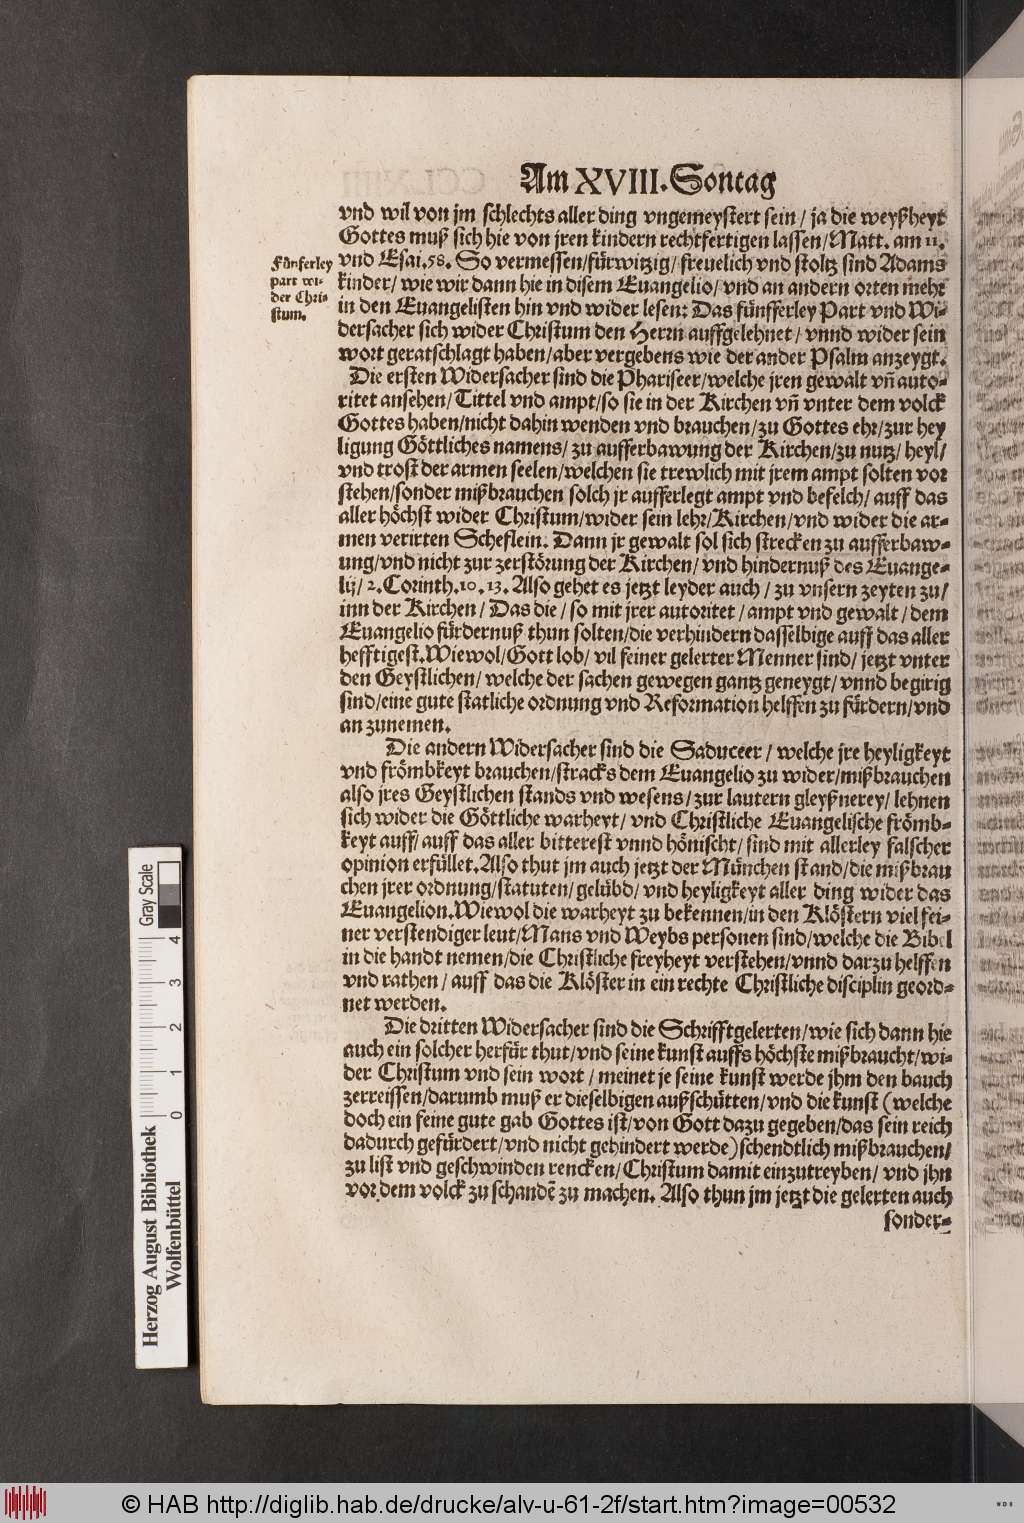 Am XVIII. Sontag
vnd wil von jm schlechts aller ding vngemeystert sein / ja die weyßheyt
Gottes muß sich hie von jren kindern rechtfertigen lassen / Matt. am 11.
vnd Esai. 58. So vermessen / fürwitzig / freuelich vnd stoltz sind Adams
kinder / wie wir dann hie in disem Euangelio / vnd an andern orten mehr
in den Euangelisten hin vnd wider lesen: Das fünfferley Part vnd Wi-
dersacher sich wider Christum den Herrn auffgelehnet / vnnd wider sein
wort geratschlagt haben / aber vergebens wie der ander Psalm anzeygt.
Fünferley
part wi-
der Chri-
stum.
Die ersten Widersacher sind die Phariseer / welche jren gewalt vñ auto-
ritet ansehen / Tittel vnd ampt / so sie in der Kirchen vñ vnter dem volck
Gottes haben / nicht dahin wenden vnd brauchen / zu Gottes ehr / zur hey
ligung Göttliches namens / zu aufferbawung der Kirchen / zu nutz / heyl /
vnd trost der armen seelen / welchen sie trewlich mit jrem ampt solten vor
stehen / sonder mißbrauchen solch jr aufferlegt ampt vnd befelch / auff das
aller höchst wider Christum / wider sein lehr / Kirchen / vnd wider die ar-
men verirten Scheflein. Dann jr gewalt sol sich strecken zu aufferbaw-
ung / vnd nicht zur zerstörung der Kirchen / vnd hindernuß des Euange-
lij / 2. Corinth. 10. 13. Also gehet es jetzt leyder auch / zu vnsern zeyten zu /
inn der Kirchen / Das die / so mit jrer autoritet / ampt vnd gewalt / dem
Euangelio fürdernuß thun solten / die verhindern dasselbige auff das aller
hefftigest. Wiewol / Gott lob / vil feiner gelerter Menner sind / jetzt vnter
den Geystlichen / welche der sachen gewegen gantz geneygt / vnnd begirig
sind / eine gute statliche ordnung vnd Reformation helffen zu fürdern / vnd
an zunemen.
Die andern Widersacher sind die Saduceer / welche jre heyligkeyt
vnd frömbkeyt brauchen / stracks dem Euangelio zu wider / mißbrauchen
also jres Geystlichen stands vnd wesens / zur lautern gleyßnerey / lehnen
sich wider die Göttliche warheyt / vnd Christliche Euangelische frömb-
keyt auff / auff das aller bitterest vnnd hönischt / sind mit allerley falscher
opinion erfüllet. Also thut jm auch jetzt der München stand / die mißbrau
chen jrer ordnung / statuten / gelübd / vnd heyligkeyt aller ding wider das
Euangelion. Wiewol die warheyt zu bekennen / in den Klöstern viel fei-
ner verstendiger leut / Mans vnd Weybs personen sind / welche die Bibel
in die handt nemen / die Christliche freyheyt verstehen / vnnd darzu helffen
vnd rathen / auff das die Klöster in ein rechte Christliche disciplin geord-
net werden.
Die dritten Widersacher sind die Schrifftgelerten / wie sich dann hie
auch ein solcher herfür thut / vnd seine kunst auffs höchste mißbraucht / wi-
der Christum vnd sein wort / meinet je seine kunst werde jhm den bauch
zerreissen / darumb muß er dieselbigen außschütten / vnd die kunst (welche
doch ein feine gute gab Gottes ist / von Gott dazu gegeben / das sein reich
dadurch gefürdert / vnd nicht gehindert werde) schendtlich mißbrauchen /
zu list vnd geschwinden rencken / Christum damit einzutreyben / vnd jhn
vor dem volck zu schandẽ zu machen. Also thun jm jetzt die gelerten auch
sonder-
Gray Scale
0 1 2 3 4
Herzog August Bibliothek
Wolfenbüttel
© HAB http://diglib.hab.de/drucke/alv-u-61-2f/start.htm?image=00532